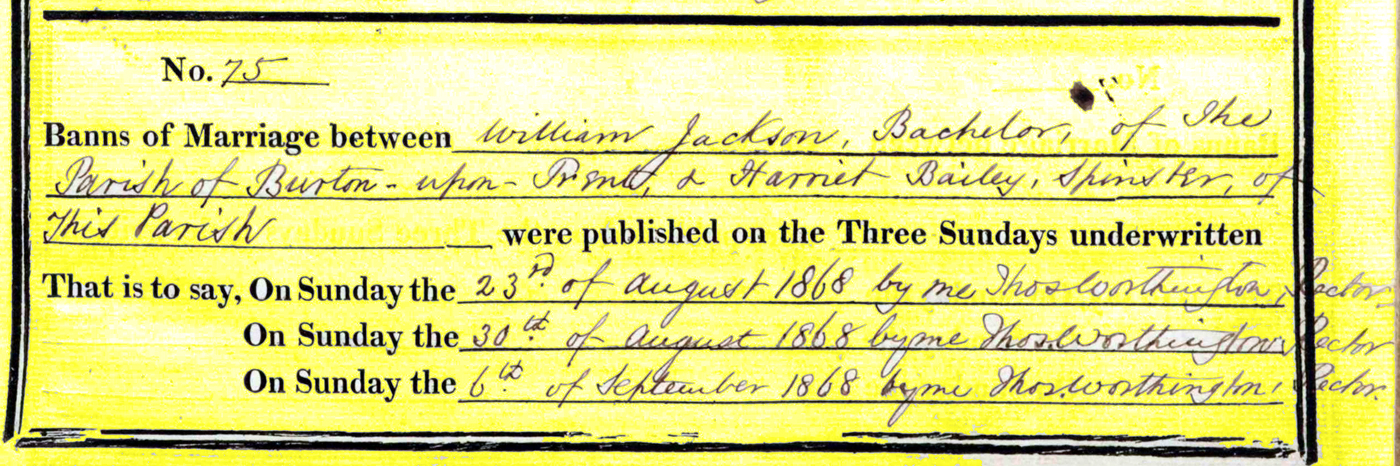 No. 75
Banns of Marriage between William Jackson, Bachelor, of The
Parish of Burton-upon-Trent, & Harriet Bailey, Spinster, of
This Parish were published on the Three Sundays underwritten
That is to say, On Sunday the 23rd. of August 1868 by me Thos Worthington, Rector.
On Sunday the 30th. of August 1868 by me Thos. Worthington, Rector
On Sunday the 6th. of September 1868 by me Thos. Worthington, Rector.